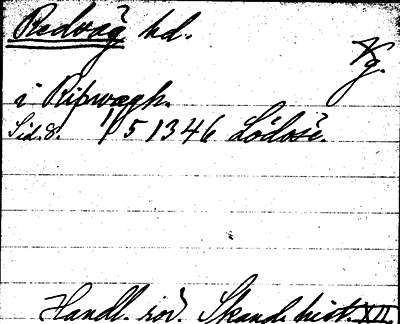 Redvæg hd.
Vg.
i Ripwægh.
Sid. 8. 1/5 1346 Lödöse.
Handl. rör. Skand. hist. XII.